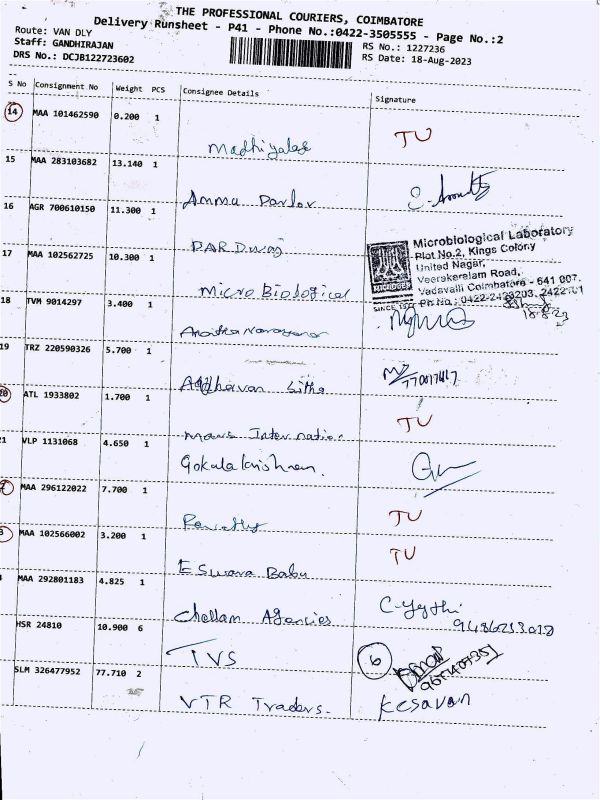 THE PROFESSIONAL COURIERS, COIMBATORE
Delivery Runsheet - P41 - Phone No.:0422-3505555 - Page No.:2
Route: VAN DLY
Staff: GANDHIRAJAN
RS No.: 1227236
DRS No.: DCJB122723602
RS Date: 18-Aug-2023
S No Consignment No Weight PCS Consignee Details Signature
14 MAA 101462590 0.200 1
TU
15 MAA 283103682 13.140 1
Amma Parlor
16 AGR 700610150 11.300 1
17 MAA 102562725 10.300 1
Micro Biological
Microbiological Laboratory
Plot No.2, Kings Colony
United Nagar,
Veerakeralam Road,
Vadavalli Coimbatore - 641 007.
18 TVM 9014297 3.400 1
18.8.23
19 TRZ 220590326 5.700 1
20 ATL 1933802 1.700 1
TU
VLP 1131068 4.650 1
Gokulakrishnan.
MAA 296122022 7.700 1
TU
MAA 102566002 3.200 1
TU
Eswara Babu
MAA 292801183 4.825 1
Chellam Agencies
HSR 24810 10.900 6
TVS 6
SLM 326477952 77.710 2
VTR Traders. Kesavan